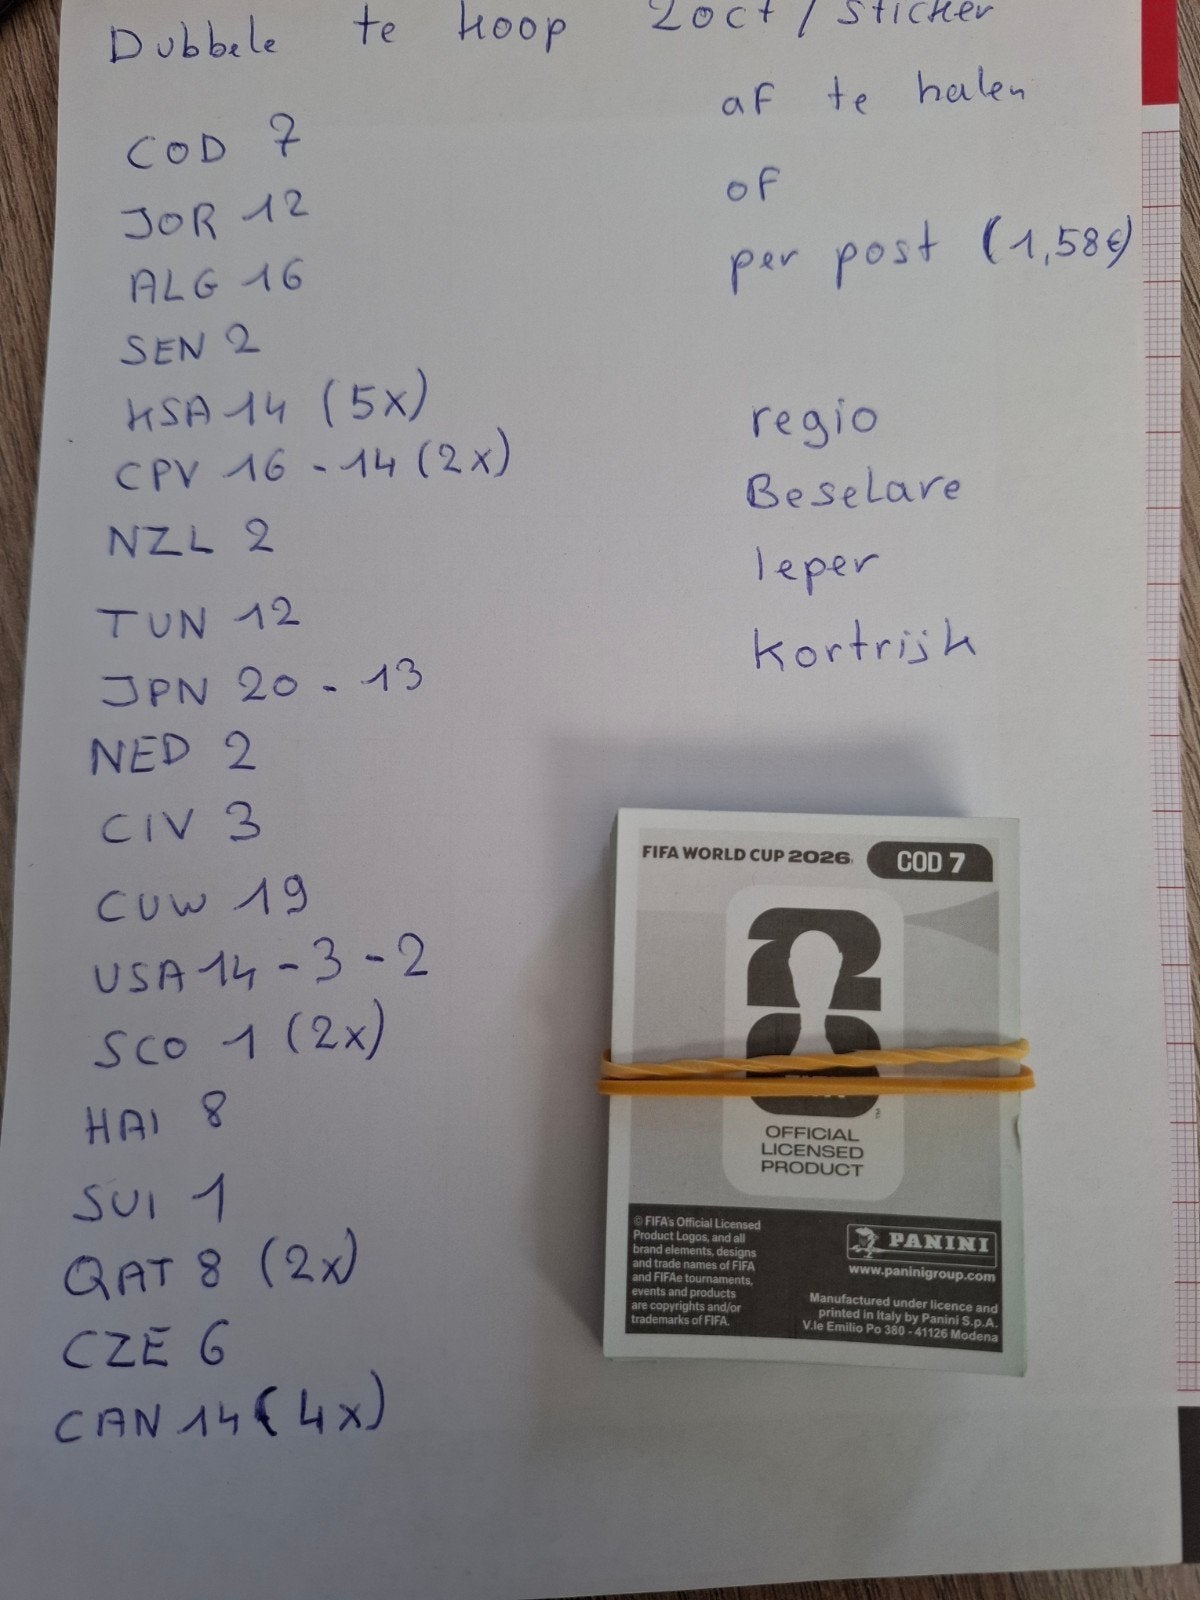 Dubbele te koop 20ct / sticker
af te halen
of
per post (1,58€)
COD 7
JOR 12
ALG 16
SEN 2
KSA 14 (5x)
CPV 16 - 14 (2x)
NZL 2
TUN 12
JPN 20 - 13
NED 2
CIV 3
CUW 19
USA 14 - 3 - 2
SCO 1 (2x)
HAI 8
SUI 1
QAT 8 (2x)
CZE 6
CAN 14 (4x)
regio
Beselare
Ieper
Kortrijk
FIFA WORLD CUP 2026
COD 7
OFFICIAL
LICENSED
PRODUCT
© FIFA's Official Licensed
Product Logos, and all
brand elements, designs
and trade names of FIFA
and FIFAe tournaments,
events and products
are copyrights and/or
trademarks of FIFA.
PANINI
www.paninigroup.com
Manufactured under licence and
printed in Italy by Panini S.p.A.
V.le Emilio Po 380 - 41126 Modena